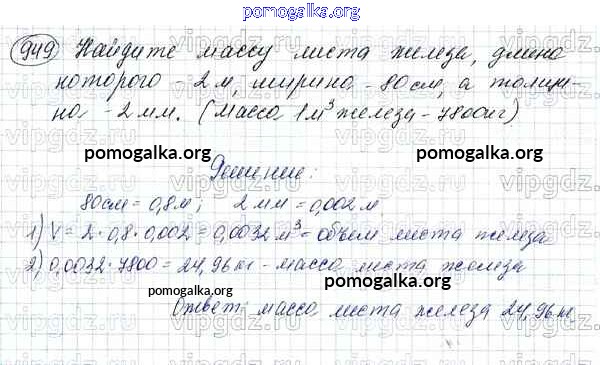 pomogalka.org
949 Найдите массу листа железа, длина
которого - 2 м, ширина - 80 см, а толщи-
на - 2 мм. (Масса 1 м³ железа - 7800 кг)
pomogalka.org pomogalka.org
Решение:
80 см = 0,8 м; 2 мм = 0,002 м
pomogalka.org pomogalka.org
1) V = 2 · 0,8 · 0,002 = 0,0032 м³ - объем листа железа
2) 0,0032 · 7800 = 24,96 кг - масса листа железа
pomogalka.org pomogalka.org
Ответ: масса листа железа 24,96 кг